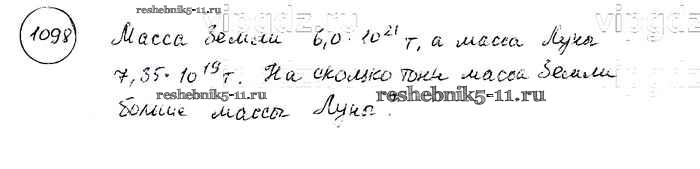 vipgdz vipgdz
reshebnik5-11.ru
1098 Масса Земли 6,0 · 10²¹ т, а масса Луны
7,35 · 10¹⁹ т. На сколько тонн масса Земли
reshebnik5-11.ru reshebnik5-11.ru
больше массы Луны.